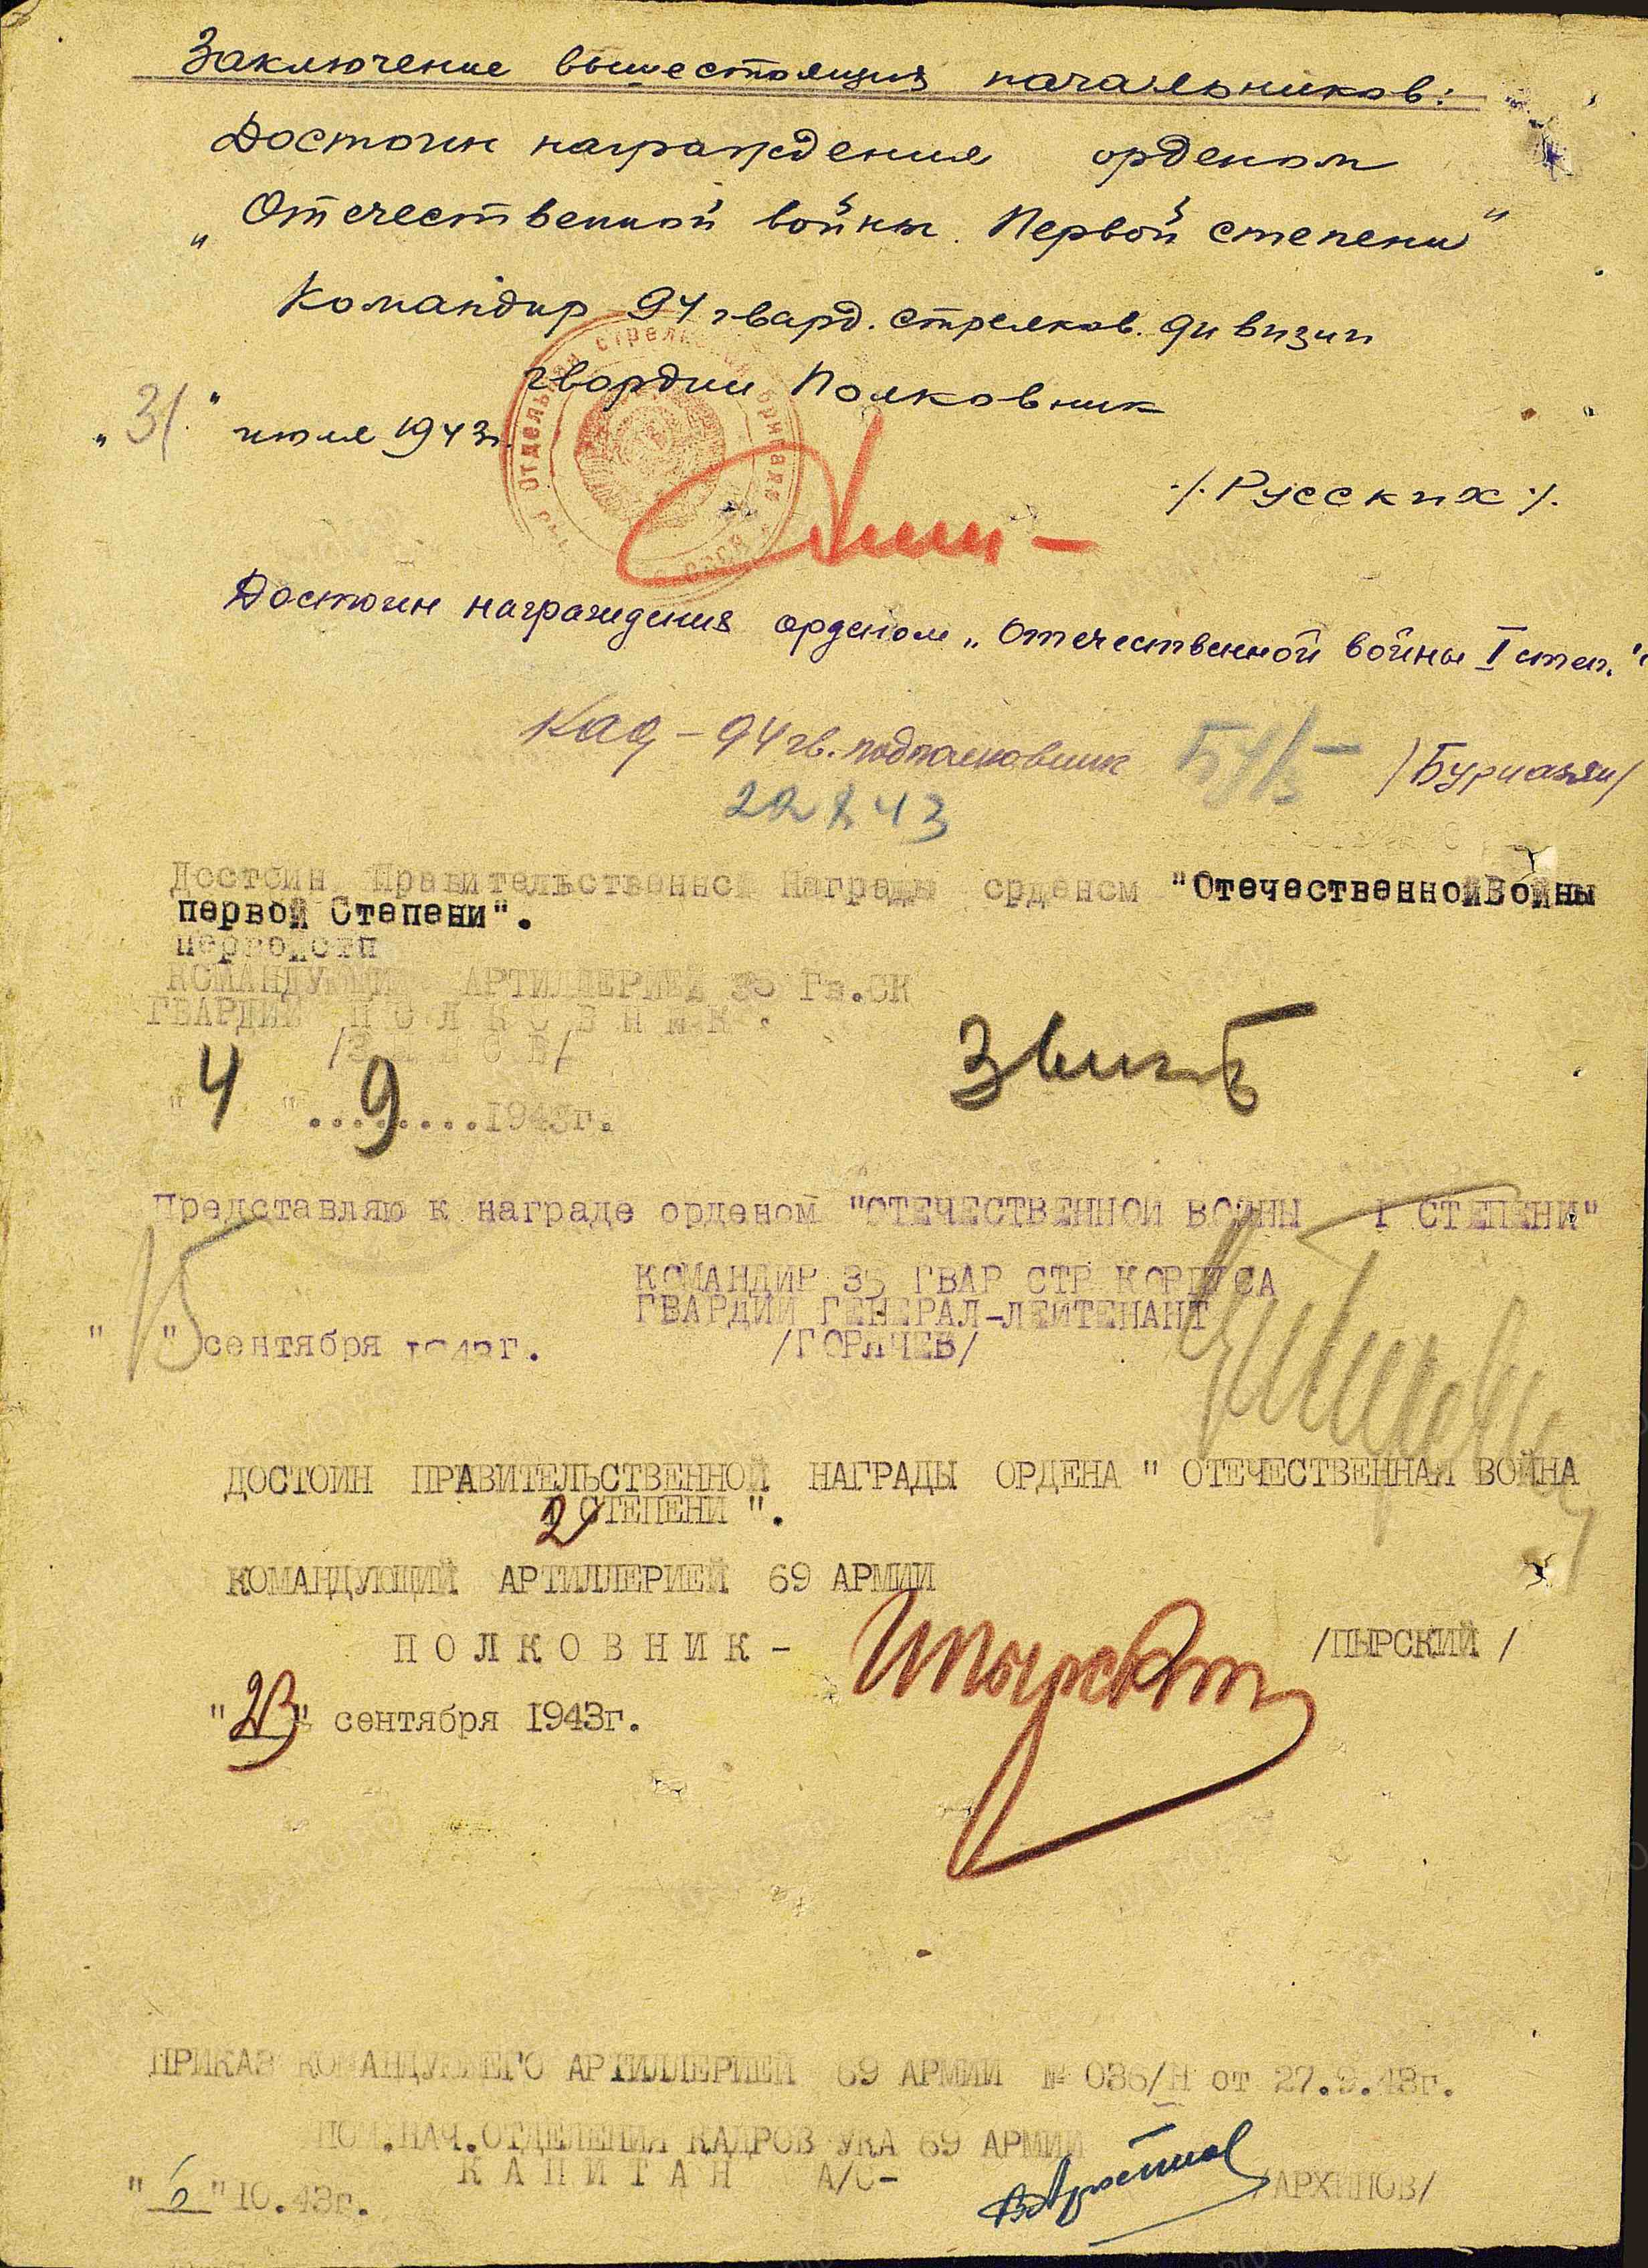 Заключение вышестоящих начальников:
Достоин награждения орденом
"Отечественной войны. Первой степени"
Командир 94 гвард. стрелков. дивизии
гвардии Полковник
"31" июля 1943г.
/.Русских./
Достоин награждения орденом „Отечественной войны I степ."
КАД - 94 гв. подполковник /Бурмазян/
22 8 43
Достоин Правительственной Награды орденом "ОтечественнойВойны
первой Степени".
КОМАНДУЮЩИЙ АРТИЛЛЕРИЕЙ 35 Гв.СК
ГВАРДИИ ПОЛКОВНИК.
"4" ..9.....1943г.
Представляю к награде орденом "ОТЕЧЕСТВЕННОЙ ВОЙНЫ I СТЕПЕНИ"
КОМАНДИР 35 ГВАР СТР КОРПУСА
ГВАРДИИ ГЕНЕРАЛ-ЛЕЙТЕНАНТ
"15" сентября 1943г. /ГОРЯЧЕВ/
ДОСТОИН ПРАВИТЕЛЬСТВЕННОЙ НАГРАДЫ ОРДЕНА " ОТЕЧЕСТВЕННАЯ ВОЙНА
2 СТЕПЕНИ ".
КОМАНДУЮЩИЙ АРТИЛЛЕРИЕЙ 69 АРМИИ
ПОЛКОВНИК- /ПЫРСКИЙ /
"23" сентября 1943г.
ПРИКАЗ КОМАНДУЮЩЕГО АРТИЛЛЕРИЕЙ 69 АРМИИ № 036/Н от 27.9.43г.
ПОМ.НАЧ.ОТДЕЛЕНИЯ КАДРОВ УКА 69 АРМИИ
КАПИТАН А/С-
"6"10.43г. /АРХИПОВ/